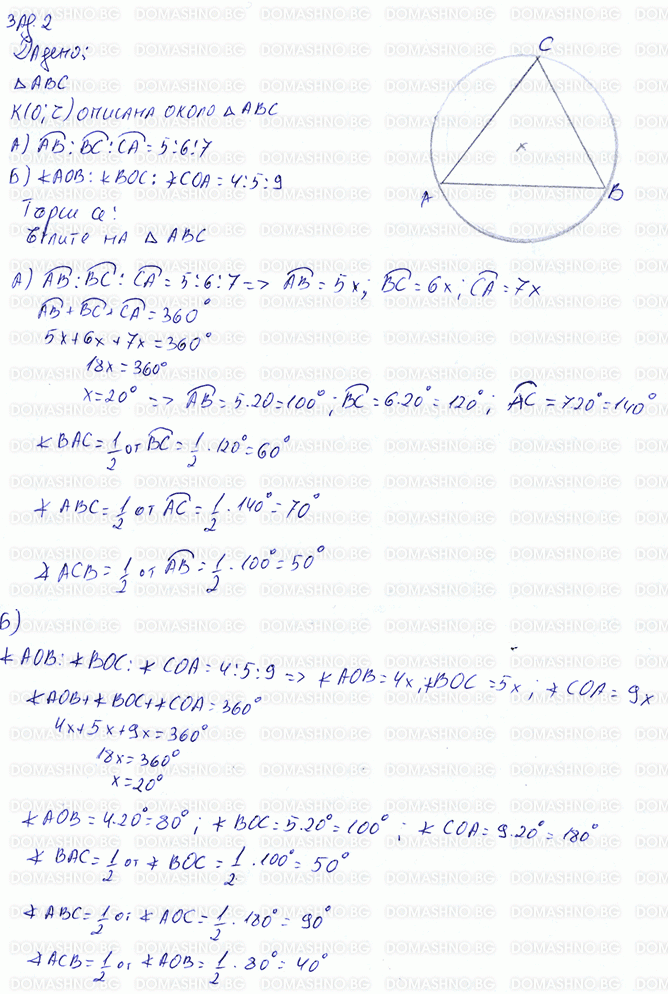 Зад. 2
Дадено:
△ABC
K(O; r) описана около △ABC
А) AB : BC : CA = 5:6:7
Б) ∢AOB : ∢BOC : ∢COA = 4:5:9
Търси се:
ъглите на △ABC
C
A
B
А) AB : BC : CA = 5:6:7 => AB = 5x; BC = 6x; CA = 7x
AB + BC + CA = 360°
5x + 6x + 7x = 360°
18x = 360°
x = 20° => AB = 5.20 = 100°; BC = 6.20° = 120°; AC = 720° = 140°
∢BAC = 1/2 от BC = 1/2 . 120° = 60°
∢ABC = 1/2 от AC = 1/2 . 140° = 70°
∢ACB = 1/2 от AB = 1/2 . 100° = 50°
Б)
∢AOB : ∢BOC : ∢COA = 4:5:9 => ∢AOB = 4x; ∢BOC = 5x; ∢COA = 9x
∢AOB + ∢BOC + ∢COA = 360°
4x + 5x + 9x = 360°
18x = 360°
x = 20°
∢AOB = 4.20° = 80°; ∢BOC = 5.20° = 100°; ∢COA = 9.20° = 180°
∢BAC = 1/2 от ∢BOC = 1/2 . 100° = 50°
∢ABC = 1/2 от ∢AOC = 1/2 . 180° = 90°
∢ACB = 1/2 от ∢AOB = 1/2 . 80° = 40°
DOMASHNO.BG